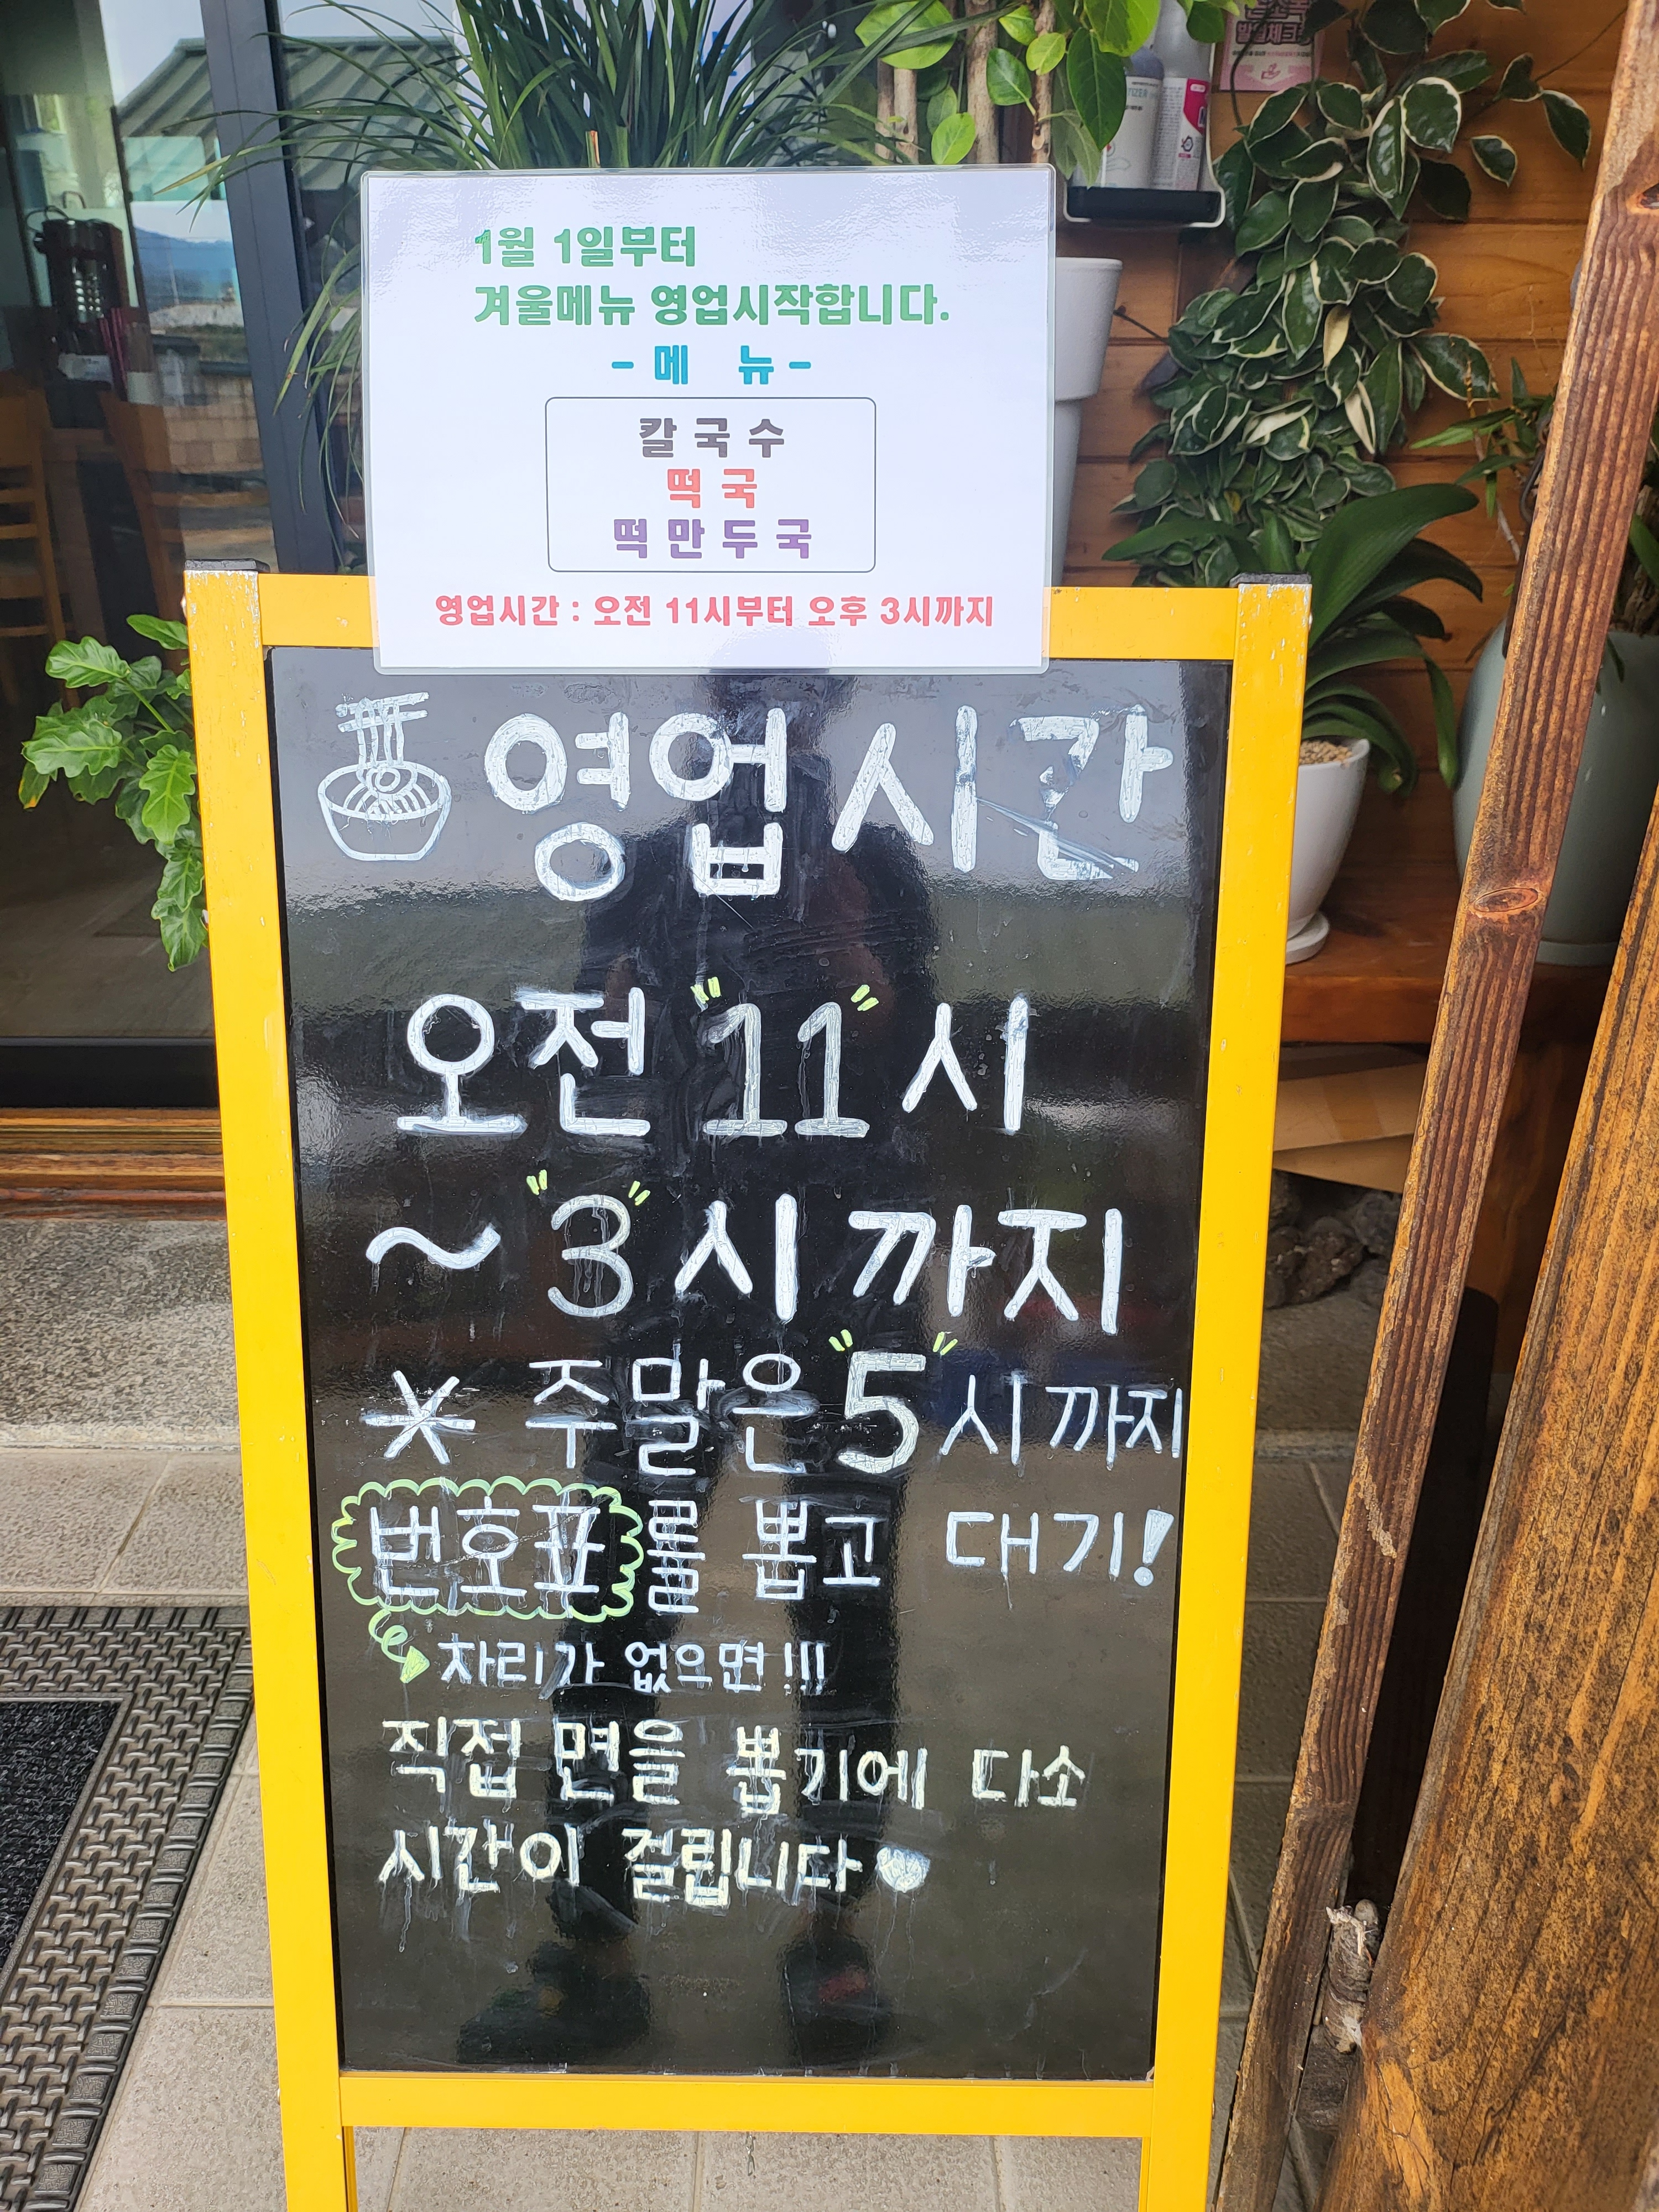 1월 1일부터
겨울메뉴 영업시작합니다.
- 메 뉴 -
칼국수
떡국
떡만두국
영업시간 : 오전 11시부터 오후 3시까지
영업시간
오전 "11"시
~ "3"시까지
* 주말은 "5"시까지
번호표를 뽑고 대기!
자리가 없으면!!!
직접 면을 뽑기에 다소
시간이 걸립니다♥